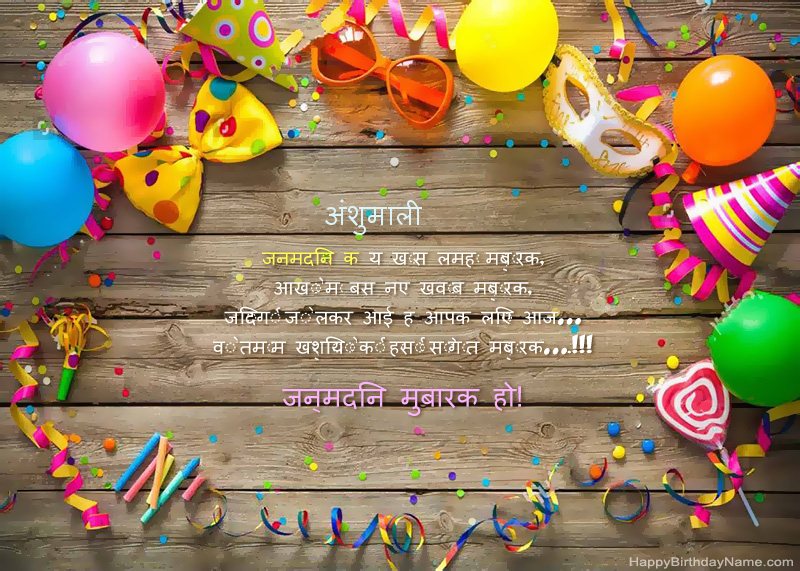 अंशुमाली
जनमदिन क य खास लमह मबारक,
आखों म बस नए खवाब मबारक,
जिदगी जो लेकर आई ह आपक लिए आज...
वो तमाम खशियों की हसीं सौगात मबारक...!!!
जन्मदिन मुबारक हो!
HappyBirthdayName.com